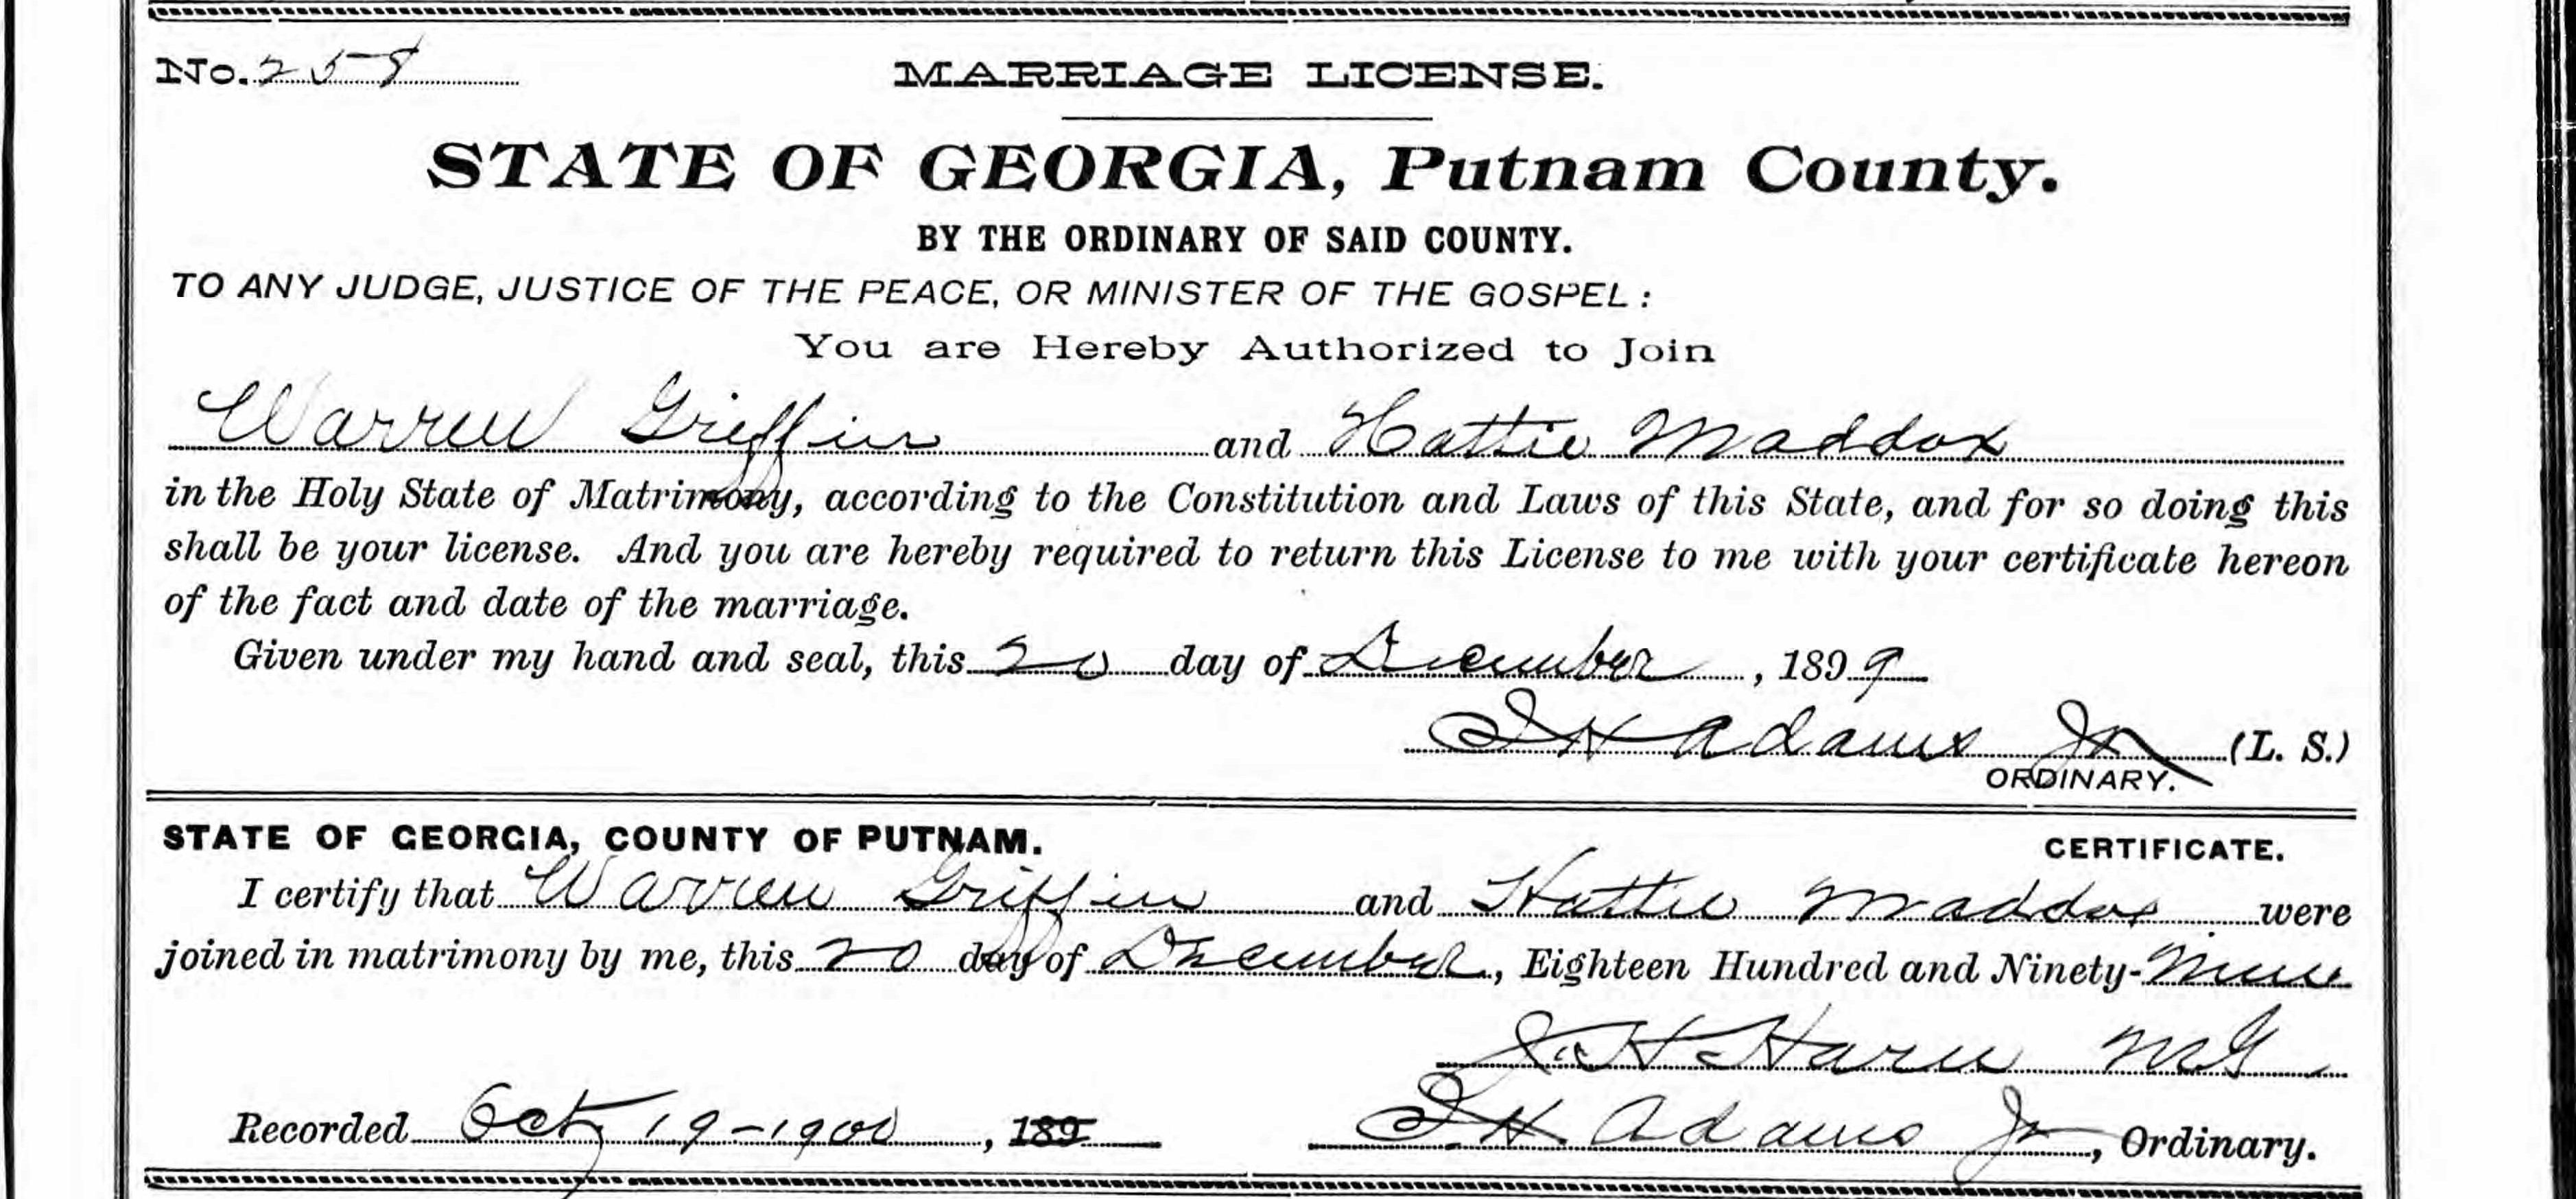 No. 258
MARRIAGE LICENSE.
STATE OF GEORGIA, Putnam County.
BY THE ORDINARY OF SAID COUNTY.
TO ANY JUDGE, JUSTICE OF THE PEACE, OR MINISTER OF THE GOSPEL:
You are Hereby Authorized to Join
Warren Griffin and Hattie Maddox
in the Holy State of Matrimony, according to the Constitution and Laws of this State, and for so doing this
shall be your license. And you are hereby required to return this License to me with your certificate hereon
of the fact and date of the marriage.
Given under my hand and seal, this 20 day of December, 1899
H Adams Jr (L. S.)
ORDINARY.
STATE OF GEORGIA, COUNTY OF PUTNAM. CERTIFICATE.
I certify that Warren Griffin and Hattie Maddox were
joined in matrimony by me, this 20 day of December, Eighteen Hundred and Ninety-Nine
H MG
Recorded Oct 19-1900, 189 H. Adams Jr, Ordinary.